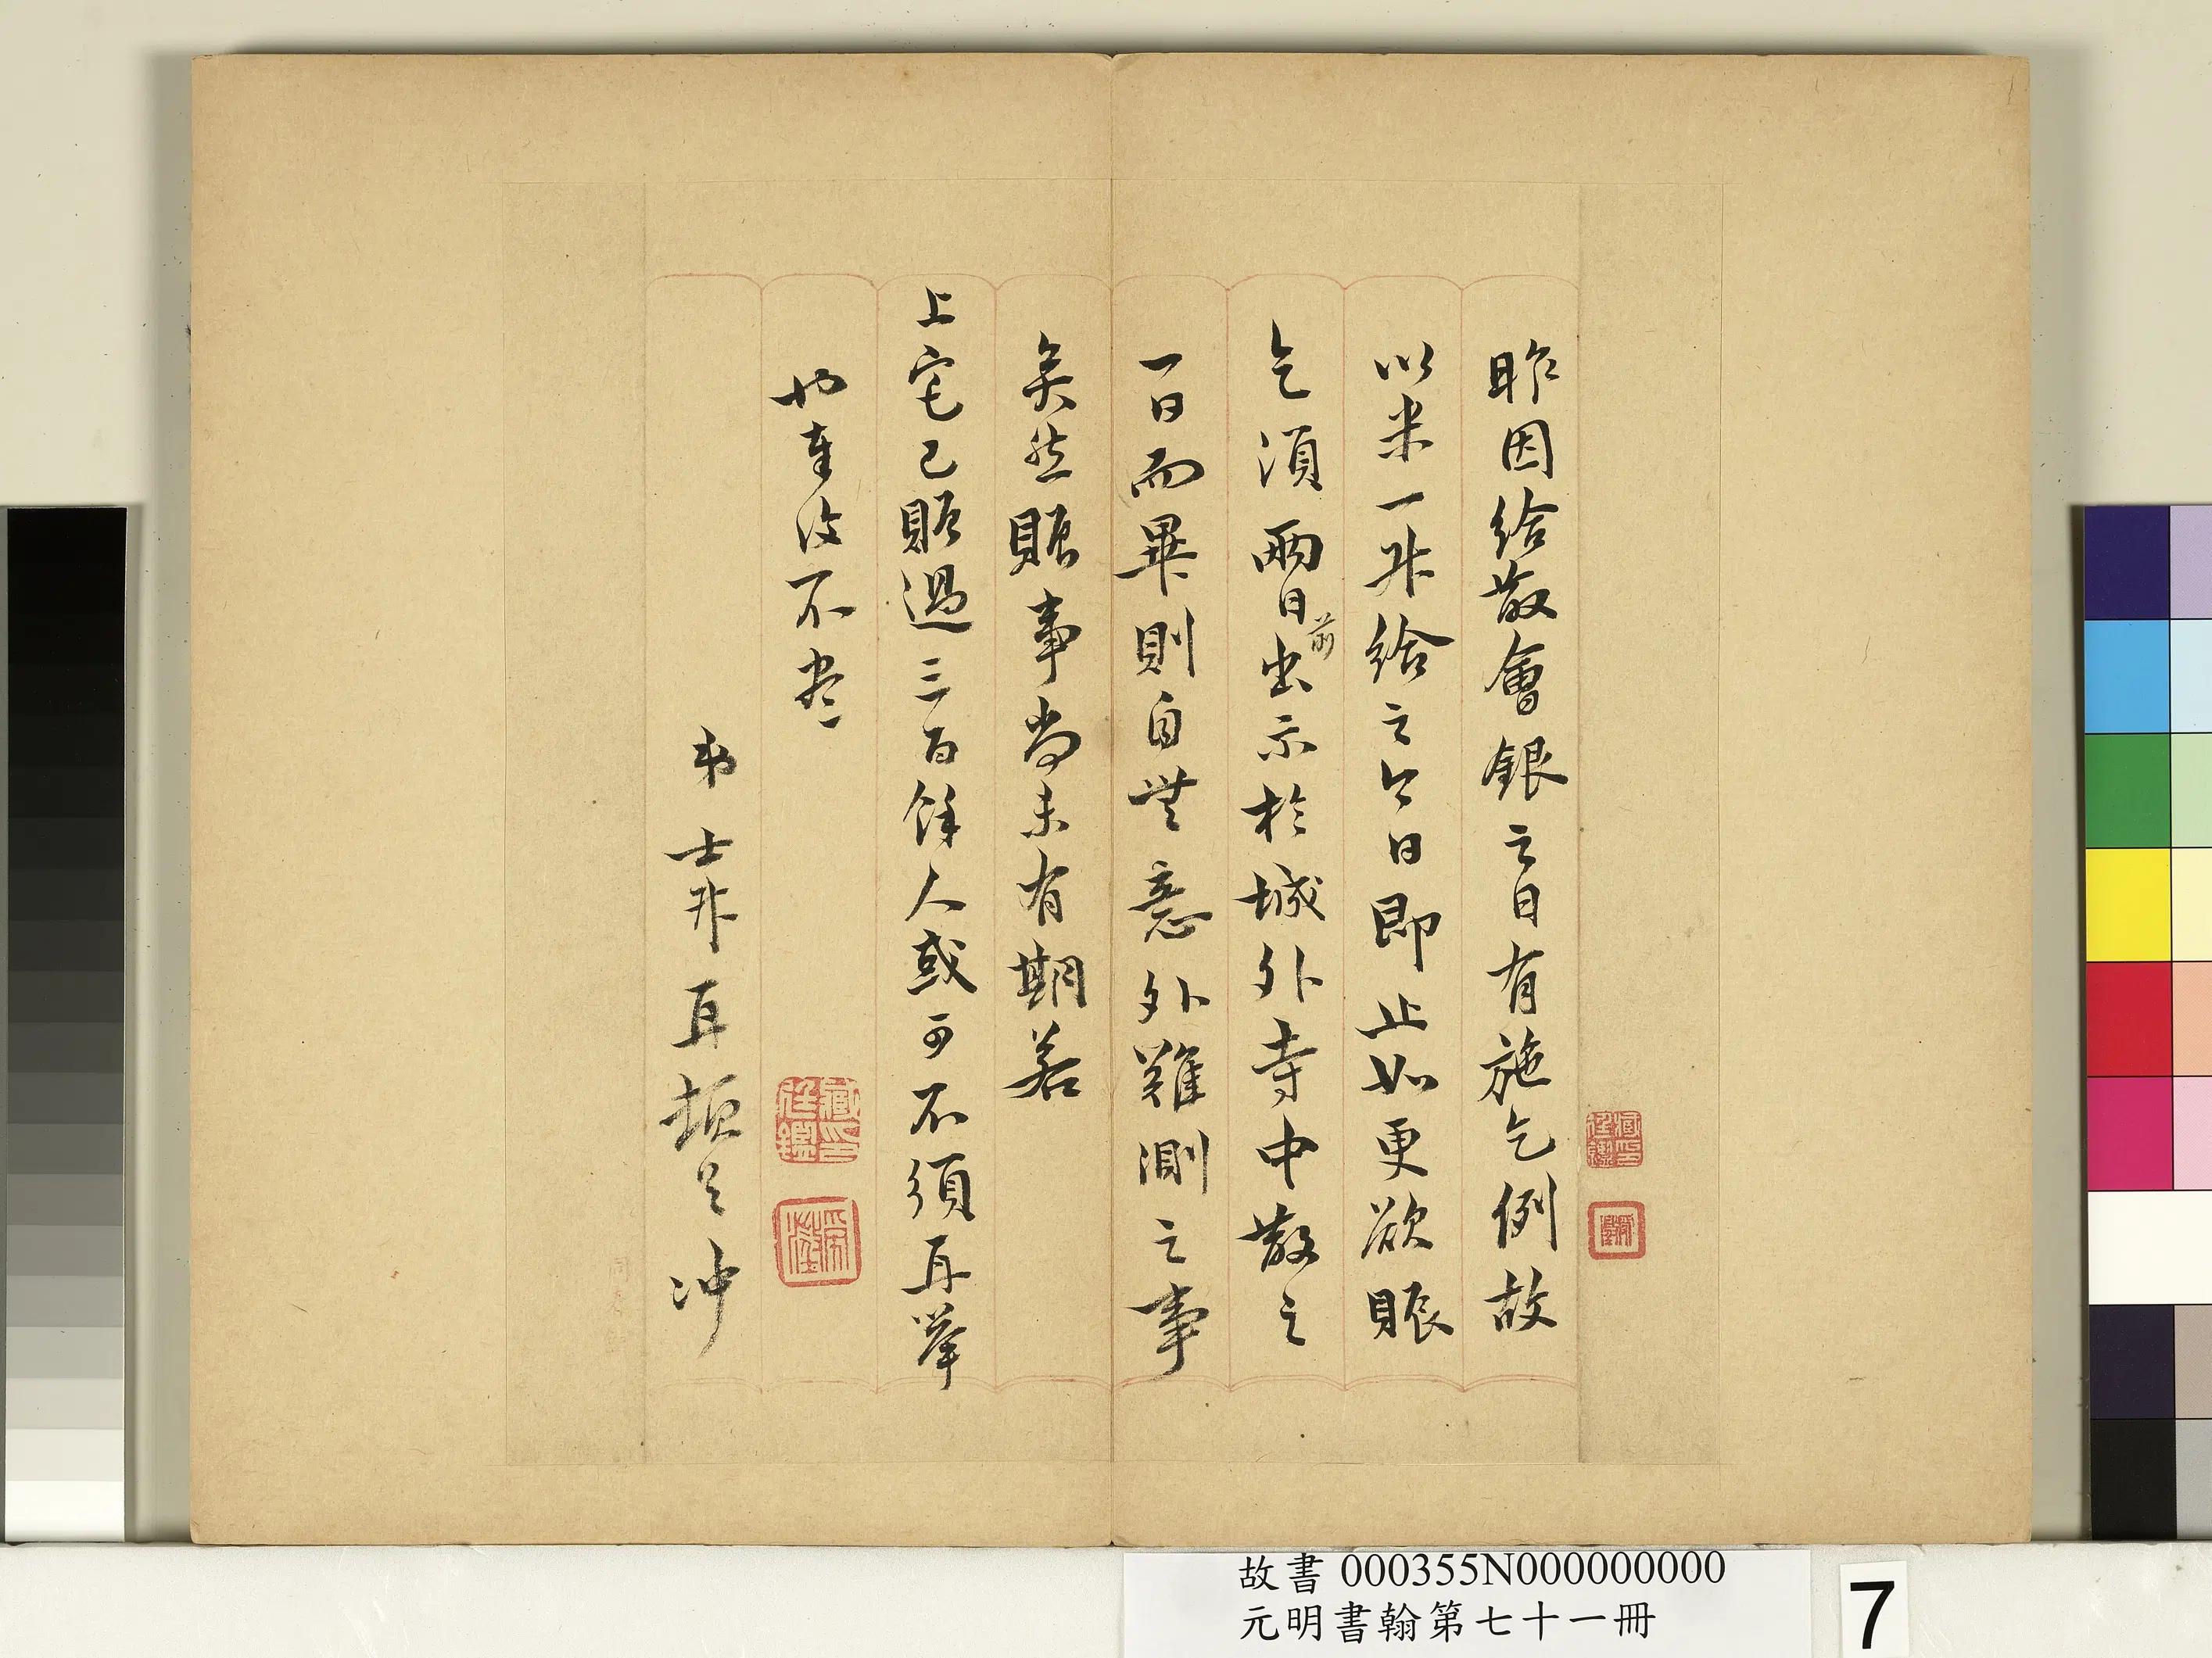 昨因給散會銀之日有施乞例故
以米一升給之今日即止如更欲賑
乞須兩日前出示於城外寺中散之
一日而畢則自無意外難測之事
矣然賑事尚未有期若
上宅已賑過三百餘人或可不須再舉
也復不盡
弟士升再頓首冲
故書 000355N000000000
元明書翰第七十一冊
7